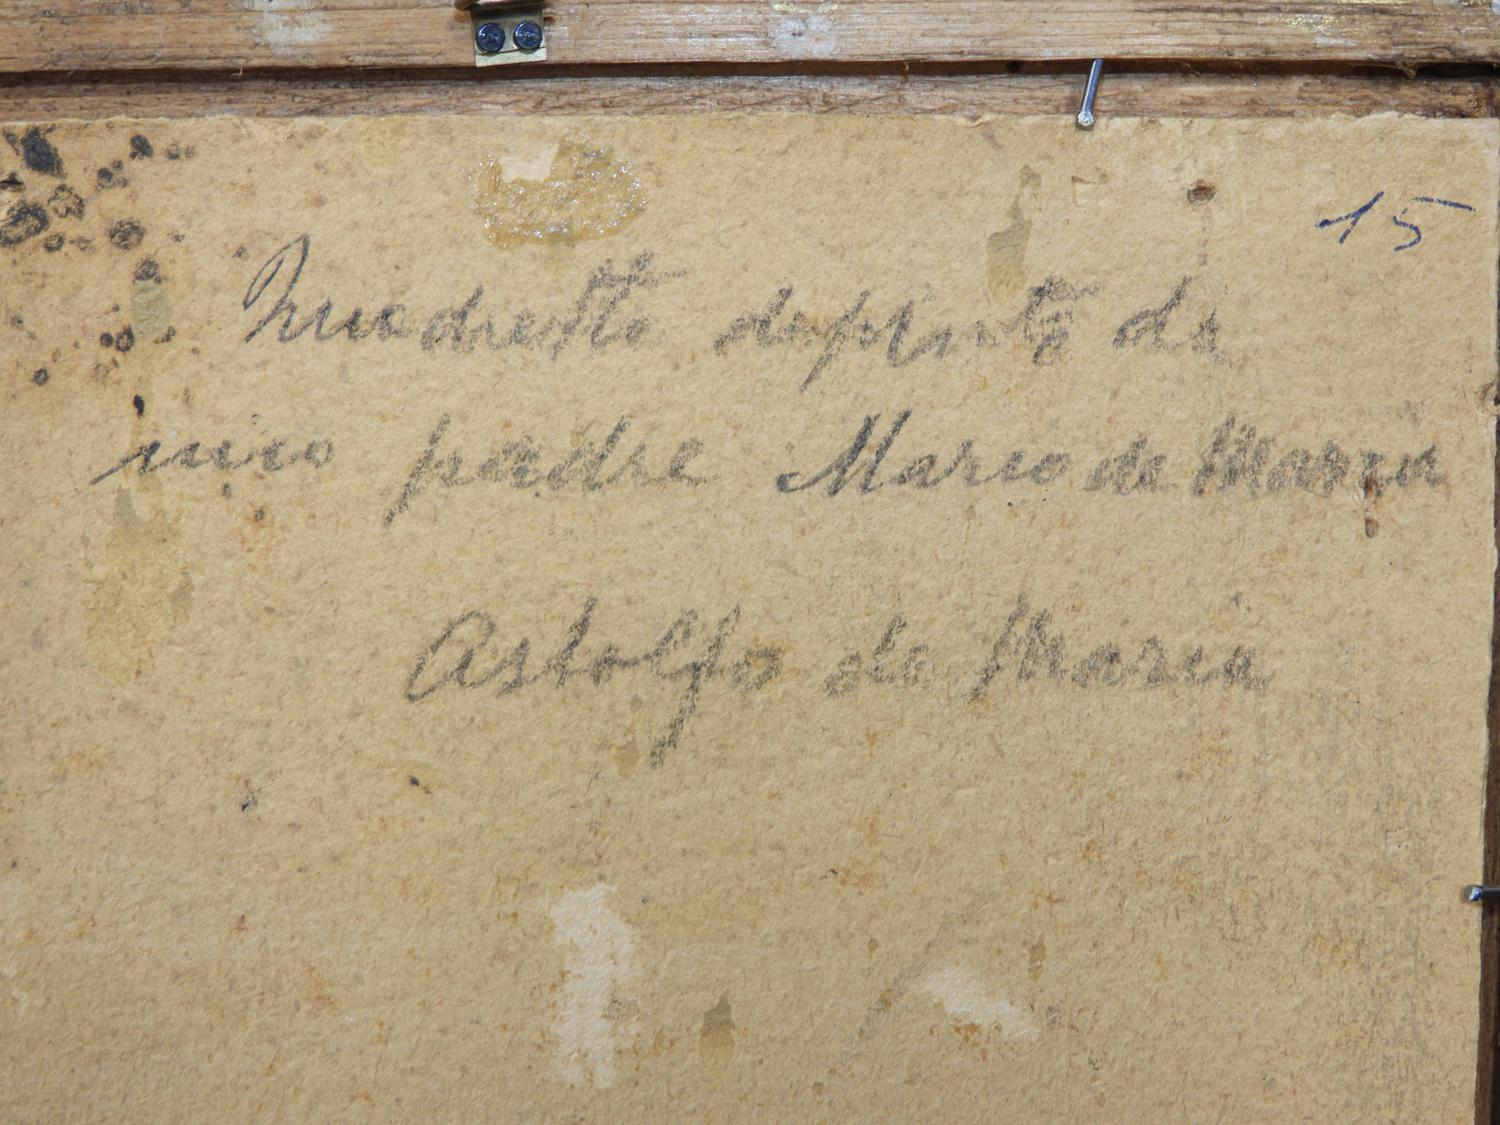 15
Quadretto dipinto da
mio padre Mario de Maria
Astolfo de Maria